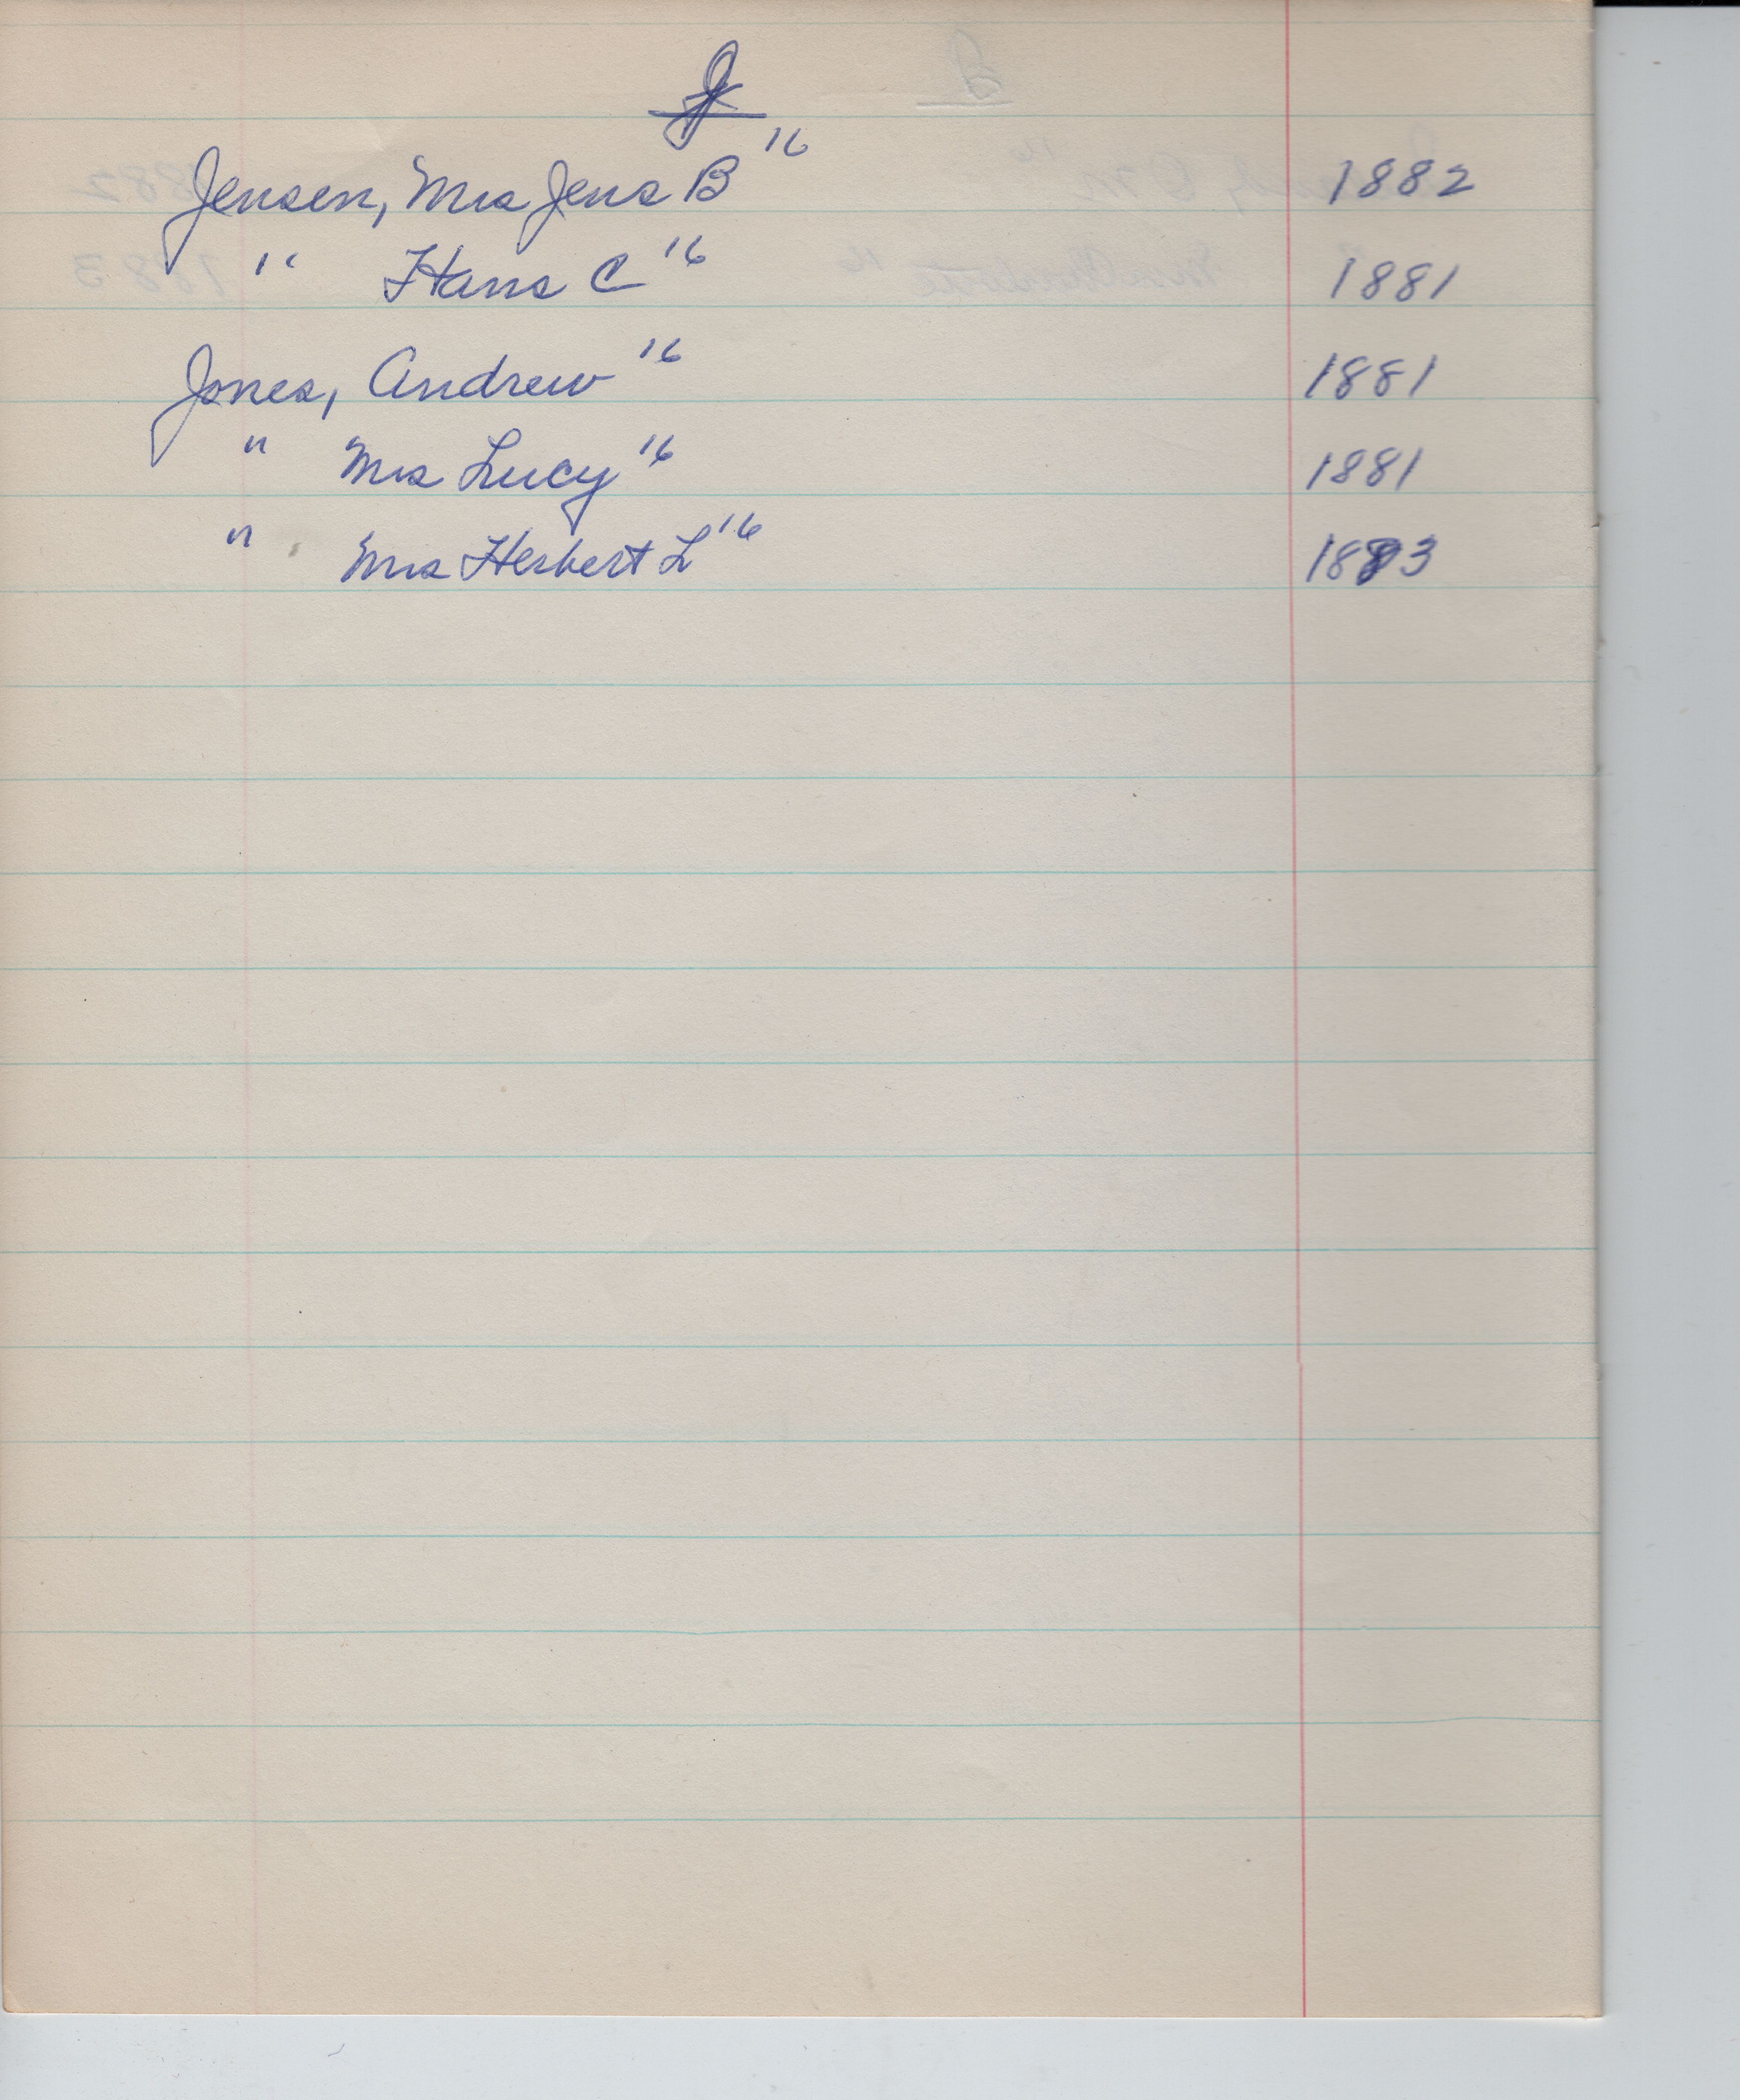 J
Jensen, Mrs Jens B 16 1882
" Hans C 16 1881
Jones, Andrew 16 1881
" Mrs Lucy 16 1881
" Mrs Herbert L 16 1883